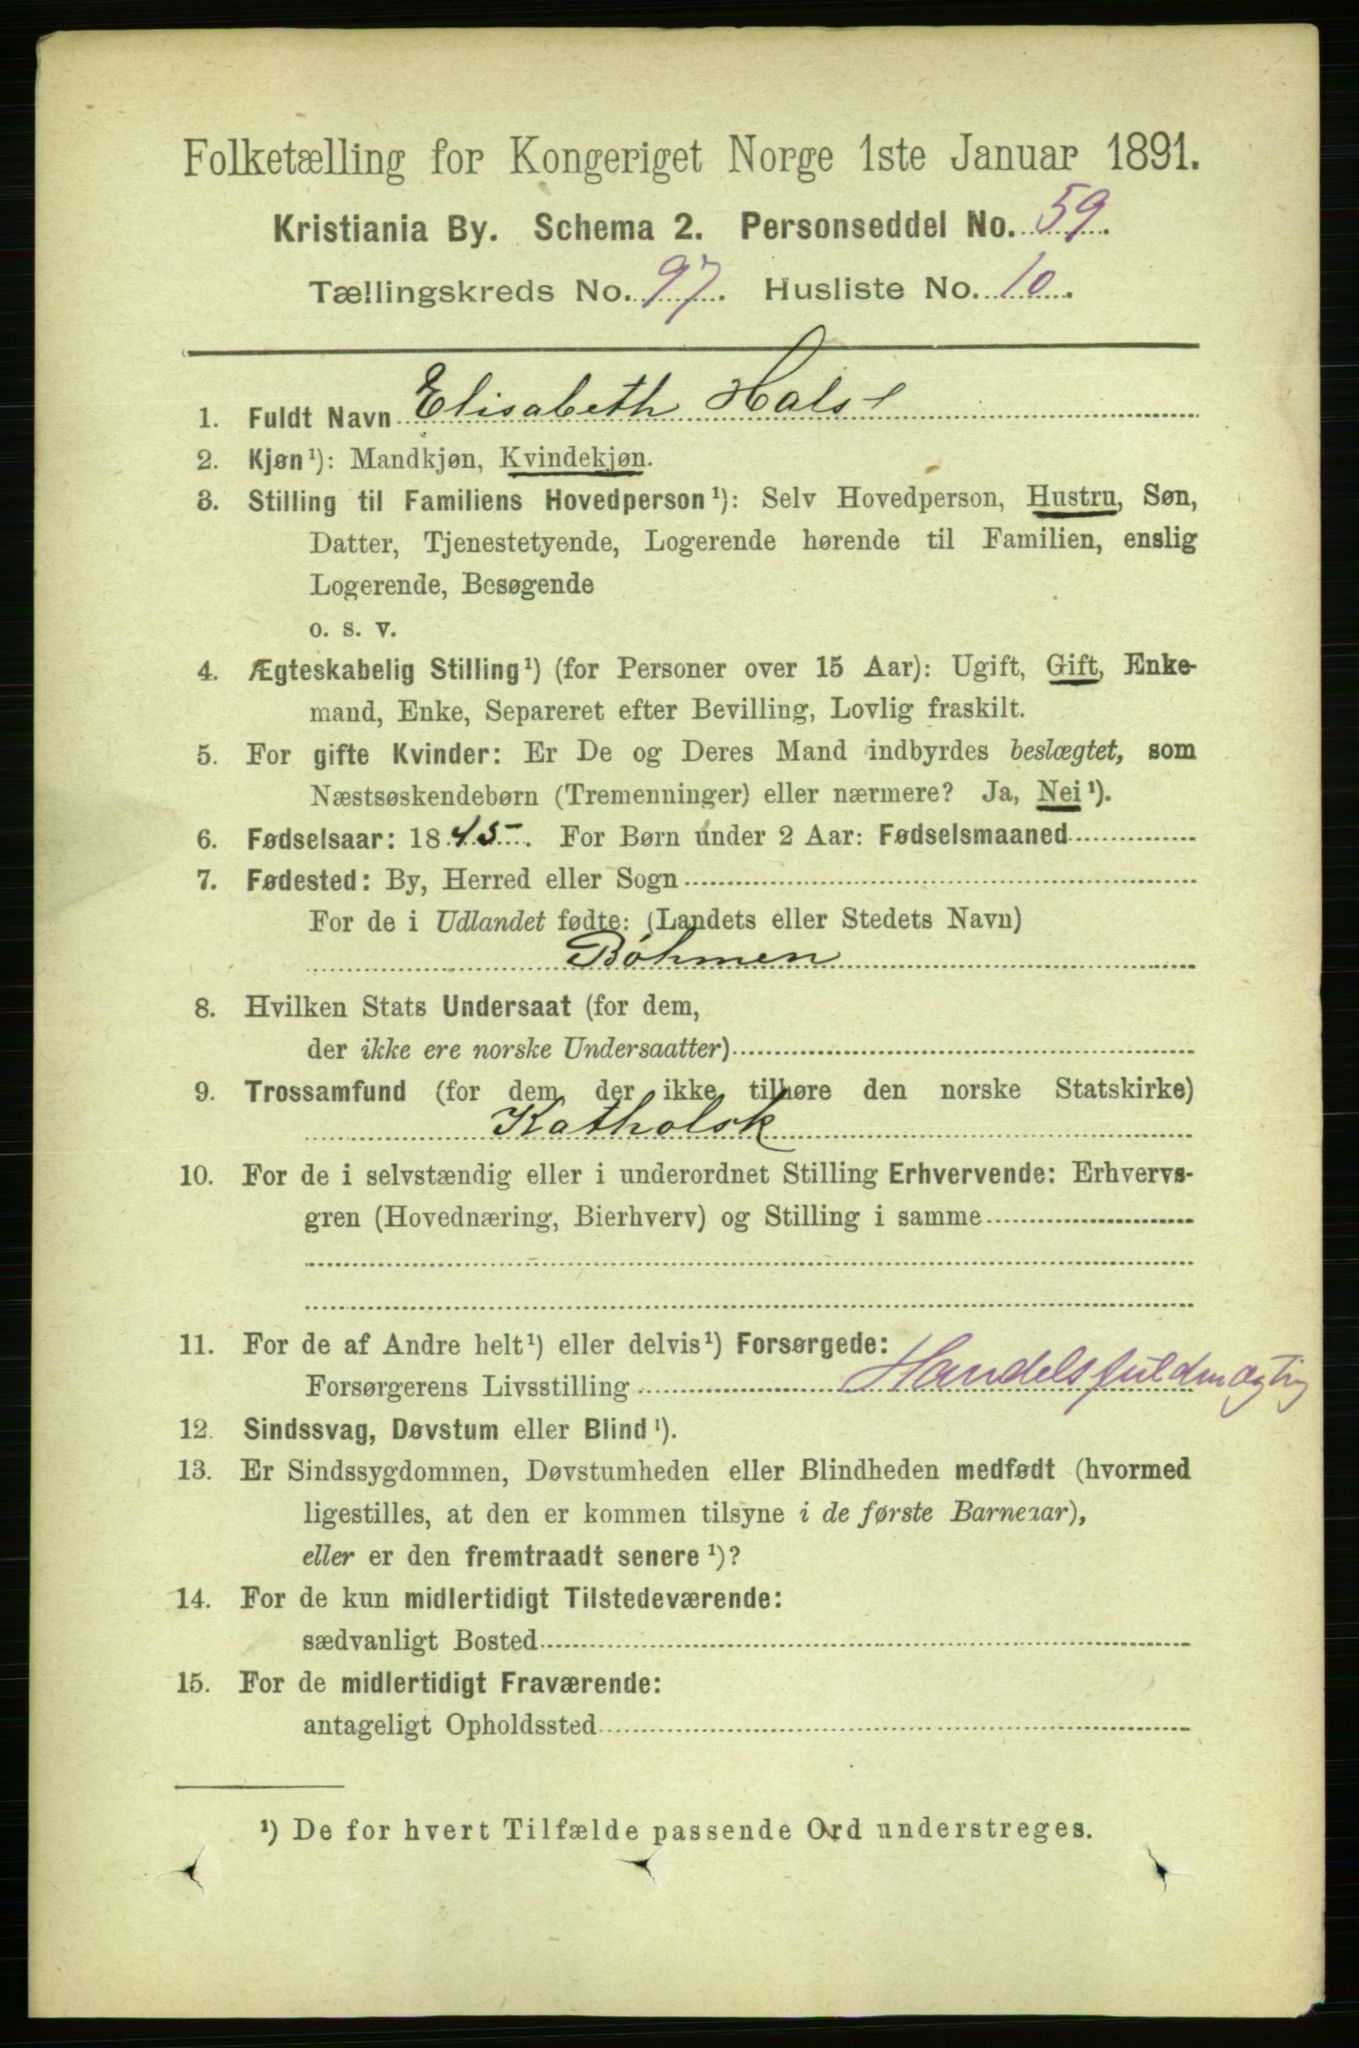 Folketælling for Kongeriget Norge 1ste Januar 1891.
Kristiania By. Schema 2. Personseddel No. 59.
Tællingskreds No. 97. Husliste No. 10.
1. Fuldt Navn Elisabeth Hals
2. Kjøn¹): Mandkjøn, Kvindekjøn.
3. Stilling til Familiens Hovedperson¹): Selv Hovedperson, Hustru, Søn,
Datter, Tjenestetyende, Logerende hørende til Familien, enslig
Logerende, Besøgende
o. s. v.
4. Ægteskabelig Stilling¹) (for Personer over 15 Aar): Ugift, Gift, Enke-
mand, Enke, Separeret efter Bevilling, Lovlig fraskilt.
5. For gifte Kvinder: Er De og Deres Mand indbyrdes beslægtet, som
Næstsøskendebørn (Tremenninger) eller nærmere? Ja, Nei¹).
6. Fødselsaar: 1845. For Børn under 2 Aar: Fødselsmaaned
7. Fødested: By, Herred eller Sogn
For de i Udlandet fødte: (Landets eller Stedets Navn)
Bøhmen
8. Hvilken Stats Undersaat (for dem,
der ikke ere norske Undersaatter)
9. Trossamfund (for dem der ikke tilhøre den norske Statskirke)
Katholsk
10. For de i selvstændig eller i underordnet Stilling Erhvervende: Erhvervs-
gren (Hovednæring, Bierhverv) og Stilling i samme
11. For de af Andre helt¹) eller delvis¹) Forsørgede:
Forsørgerens Livsstilling Handelsfuldmægtig
12. Sindssvag, Døvstum eller Blind¹).
13. Er Sindssygdommen, Døvstumheden eller Blindheden medfødt (hvormed
ligestilles, at den er kommen tilsyne i de første Barneaar),
eller er den fremtraadt senere¹)?
14. For de kun midlertidigt Tilstedeværende:
sædvanligt Bosted
15. For de midlertidigt Fraværende:
antageligt Opholdssted
¹) De for hvert Tilfælde passende Ord understreges.